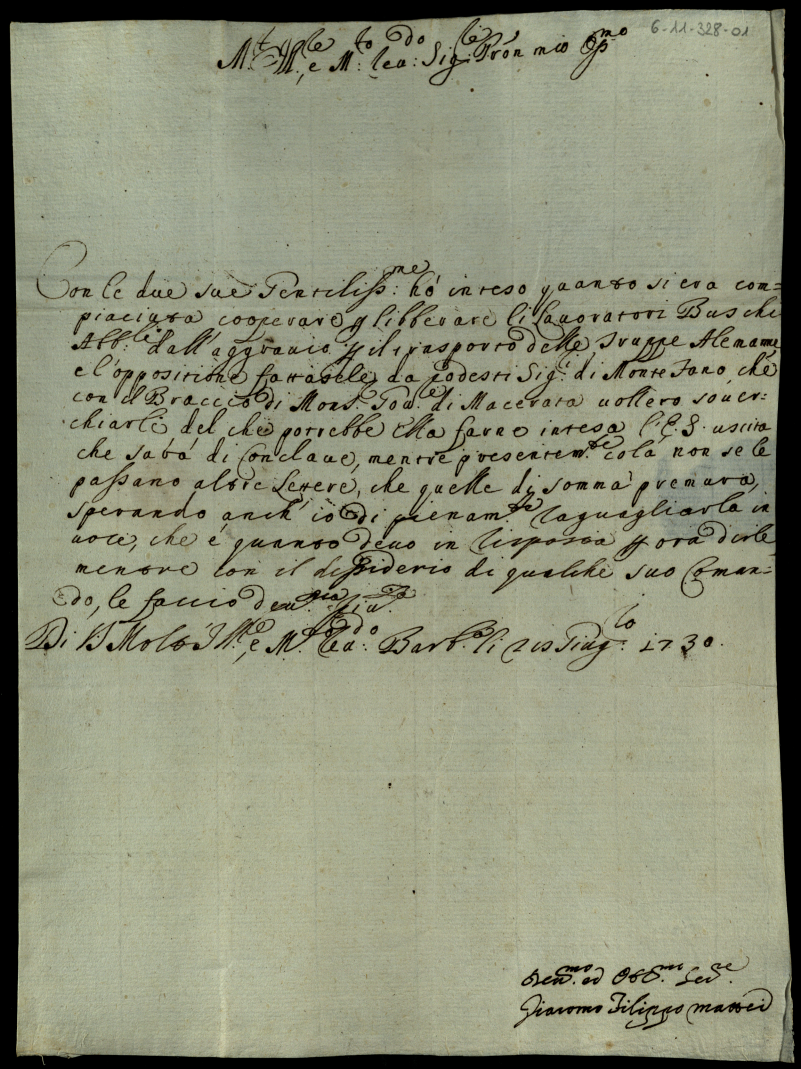 6-11-328-01
M.t Ill.e e M.to Reu:do Sig:le Prőn mio Oss.mo
Con le due sue Gentiliss:me hò inteso quanto si era com=
piaciuta cooperare p libberare li Lauoratori Buschi
Abb:li dall'aggrauio p il trasporto delle Truppe Alemane
e l'opposizione fattasele da codesti Sig.i di Monte Fano, che
con il Braccio di Mons.r Gou.re di Macerata uollero souer-
chiarli del che potrebbe ella farne intesa l'E.S. uscita
che sarà di Conclaue, mentre presentem.te colà non se le
passano altre Lettere, che quelle di somma premura,
sperando anch'io di pienam.te raguagliarla in
uoce, che è quanto deuo in risposta p ora dirle
mentre con il dessiderio di qualche suo Coman=
do, le faccio deu.ma riu.za
Di V.S. Molto Ill.e, e M.to Reu:do Barb.a li 215 Giug:o 1730.
Deu.mo ed Obb.mo Ser.re
Giacomo Filippo Mattei